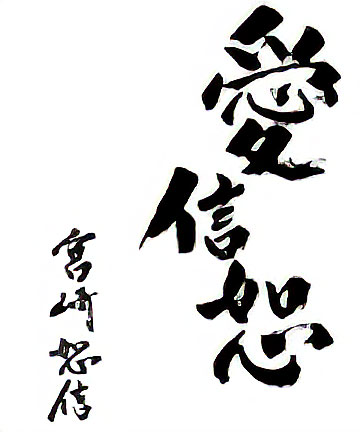 愛信恕
宮崎恕信